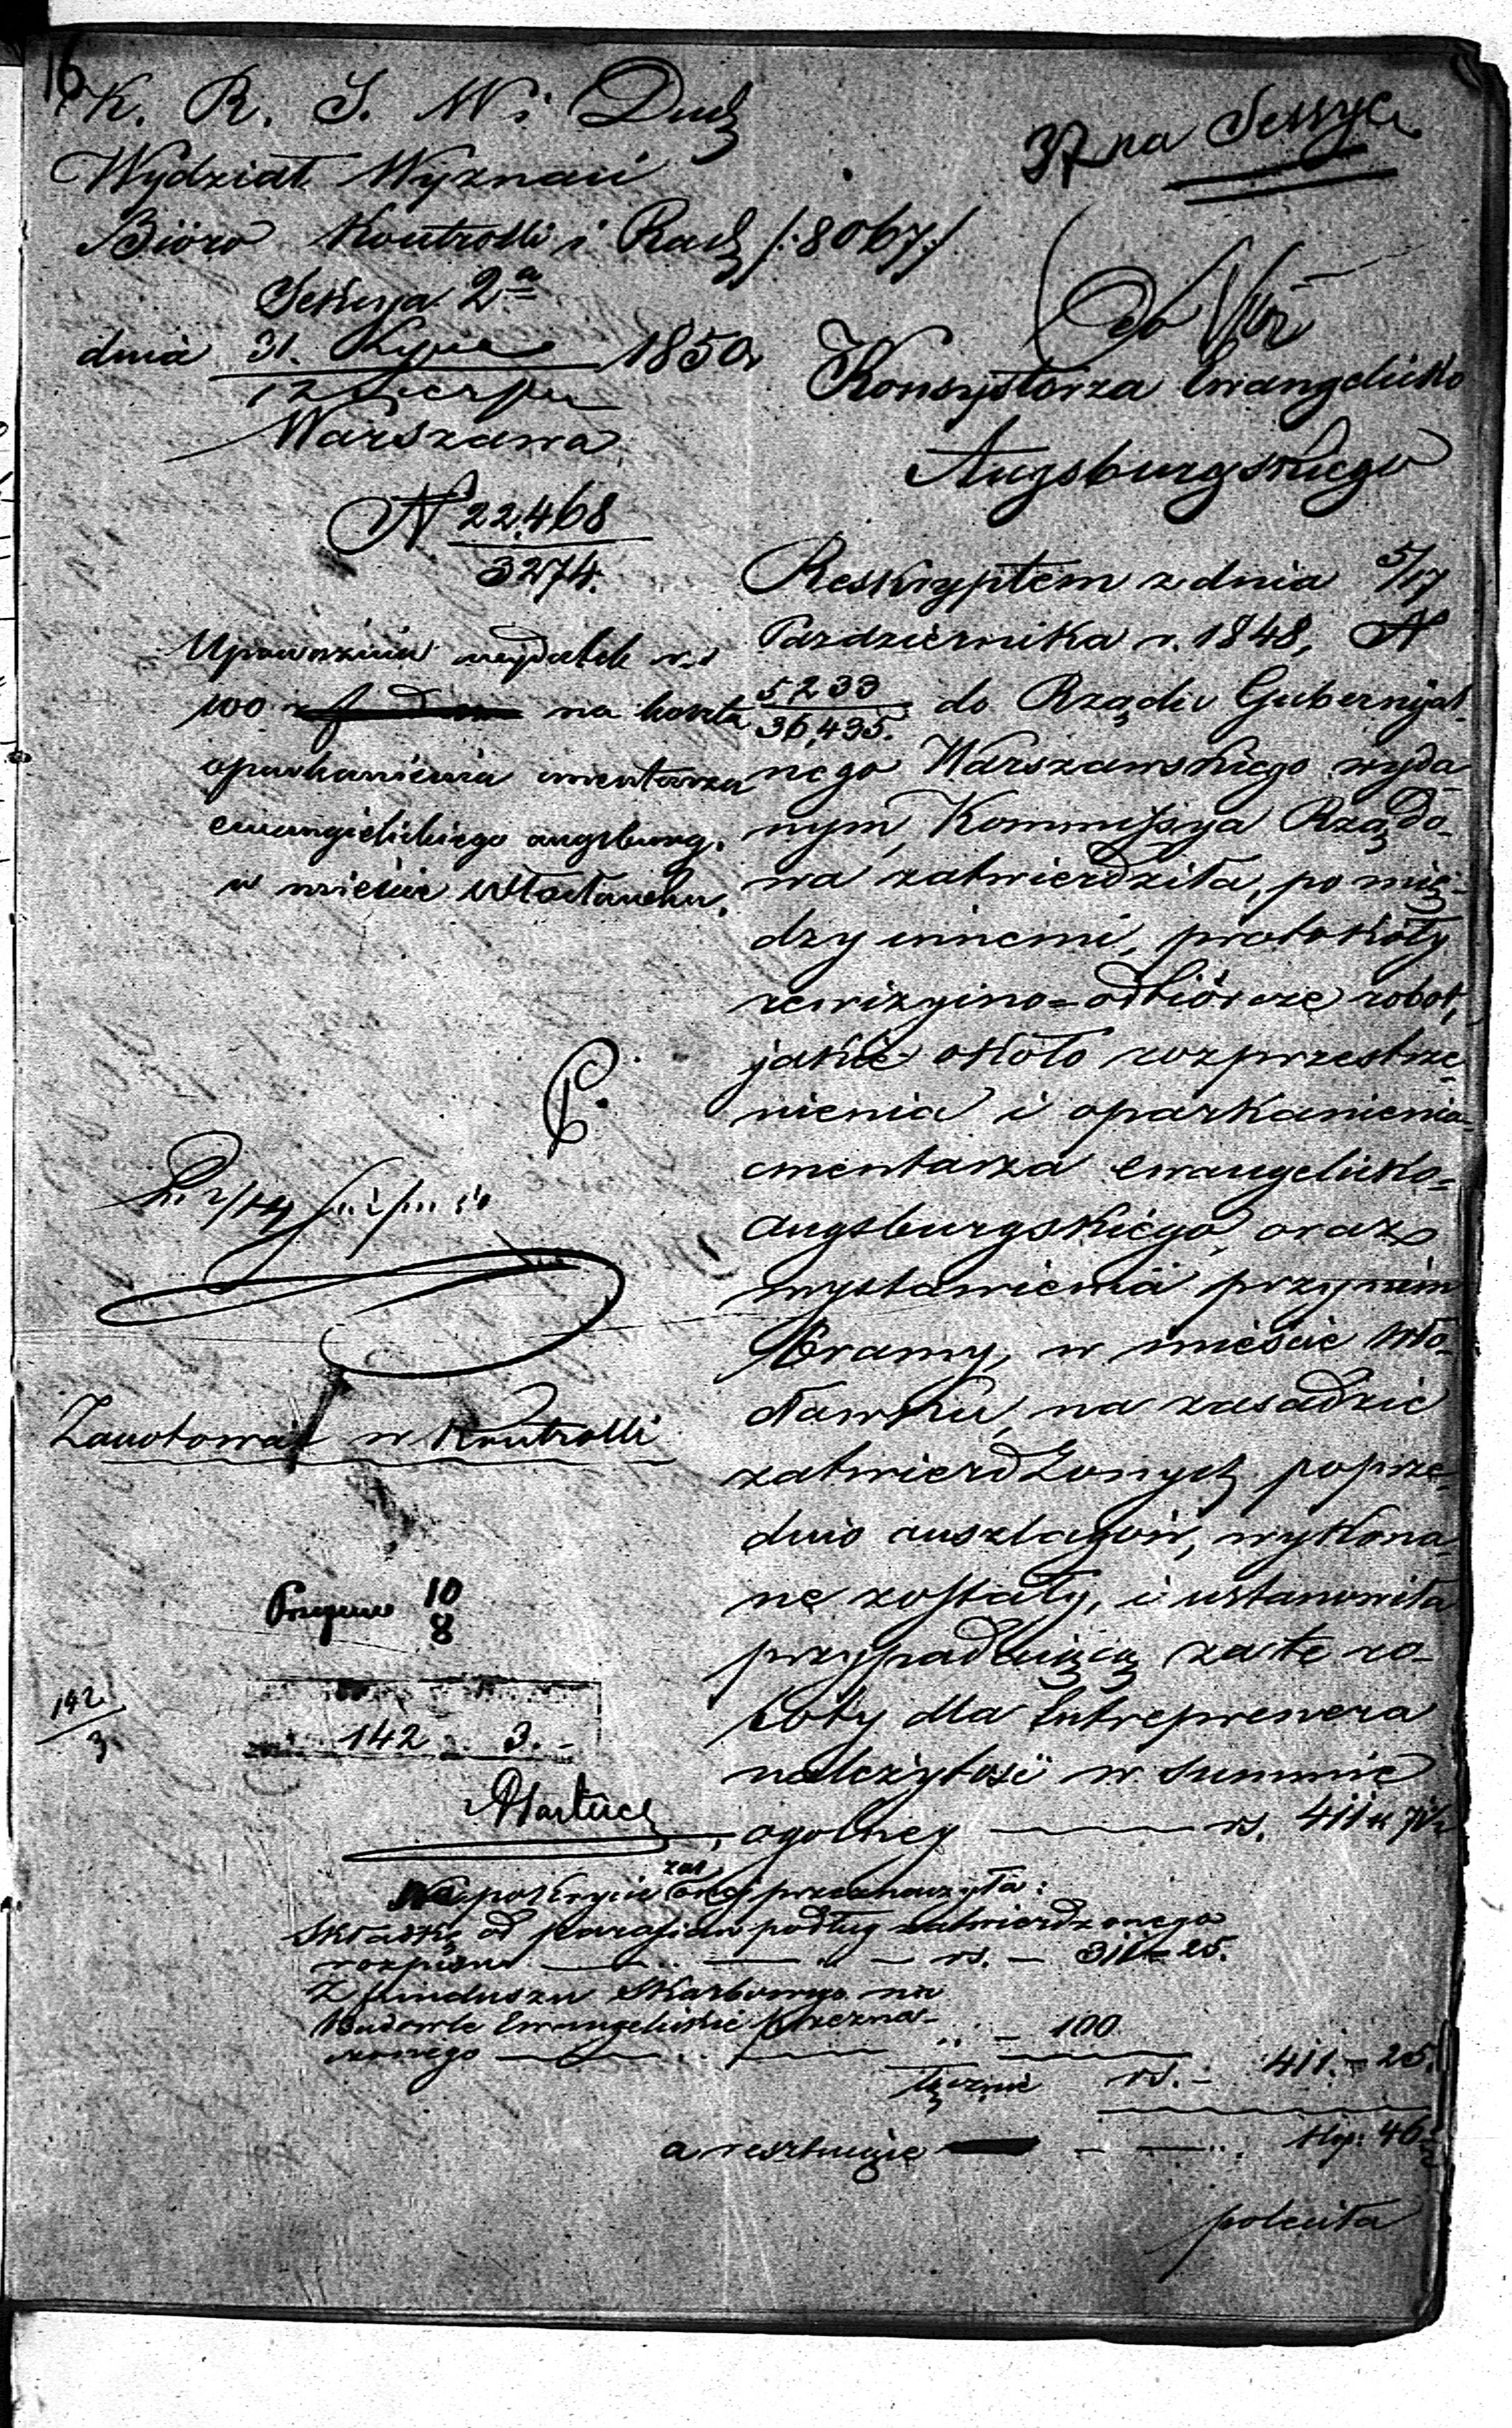 16
K. R. S. W. i Duch
Wydział Wyznań
Bióro Kontrolli i Rach /:8067:/
Sekcya 2a
dnia 31. Lipca 1850
12 Sierpn
Warszawa
N 22,468
3274.
37 na Sessyę
Do
Konsystorza Ewangelicko
Augsburgskiego
Upoważnia wydatek rs
100 na koszta
oparkanienia cmentarza
ewangielickiego augsburg.
w mieście Włocławku.
Zanotował w Kontrolli
10
8
142
3
142 3. -
Reskryptem z dnia 5/17
Października r. 1848, N
5233
36,435. do Rządu Gubernijal-
nego Warszawskiego wyda-
nym, Kommissya Rządo-
wa zatwierdziła, pomię-
dzy innemi, protokóły
rewizyino-odbiórcze robot,
jakie około rozprzestrze-
nienia i oparkanienia
cmentarza ewangelicko-
augsburgskiego, oraz
wystawienia przy nim
Bramy, w mieście Wło-
cławku, na zasadzie
zatwierdzonych poprze-
dnio anszlagów, wykona-
ne zostały, i ustanowiła
przypadaiącą za te ro-
boty dla Entreprenera
należytość w summie
ogolney rs. 411 k 71½
Na pokrycie zaś onej przeznaczyła:
Składkę od parafian podług zatwierdzonego
rozpisu rs. - 311 - 25.
Z funduszu Skarbowego na
Budowle Ewangelickie przezna-
czonego 100
łącznie rs. - 411. - 25.
a resztuiące kop: 46½
poleciła